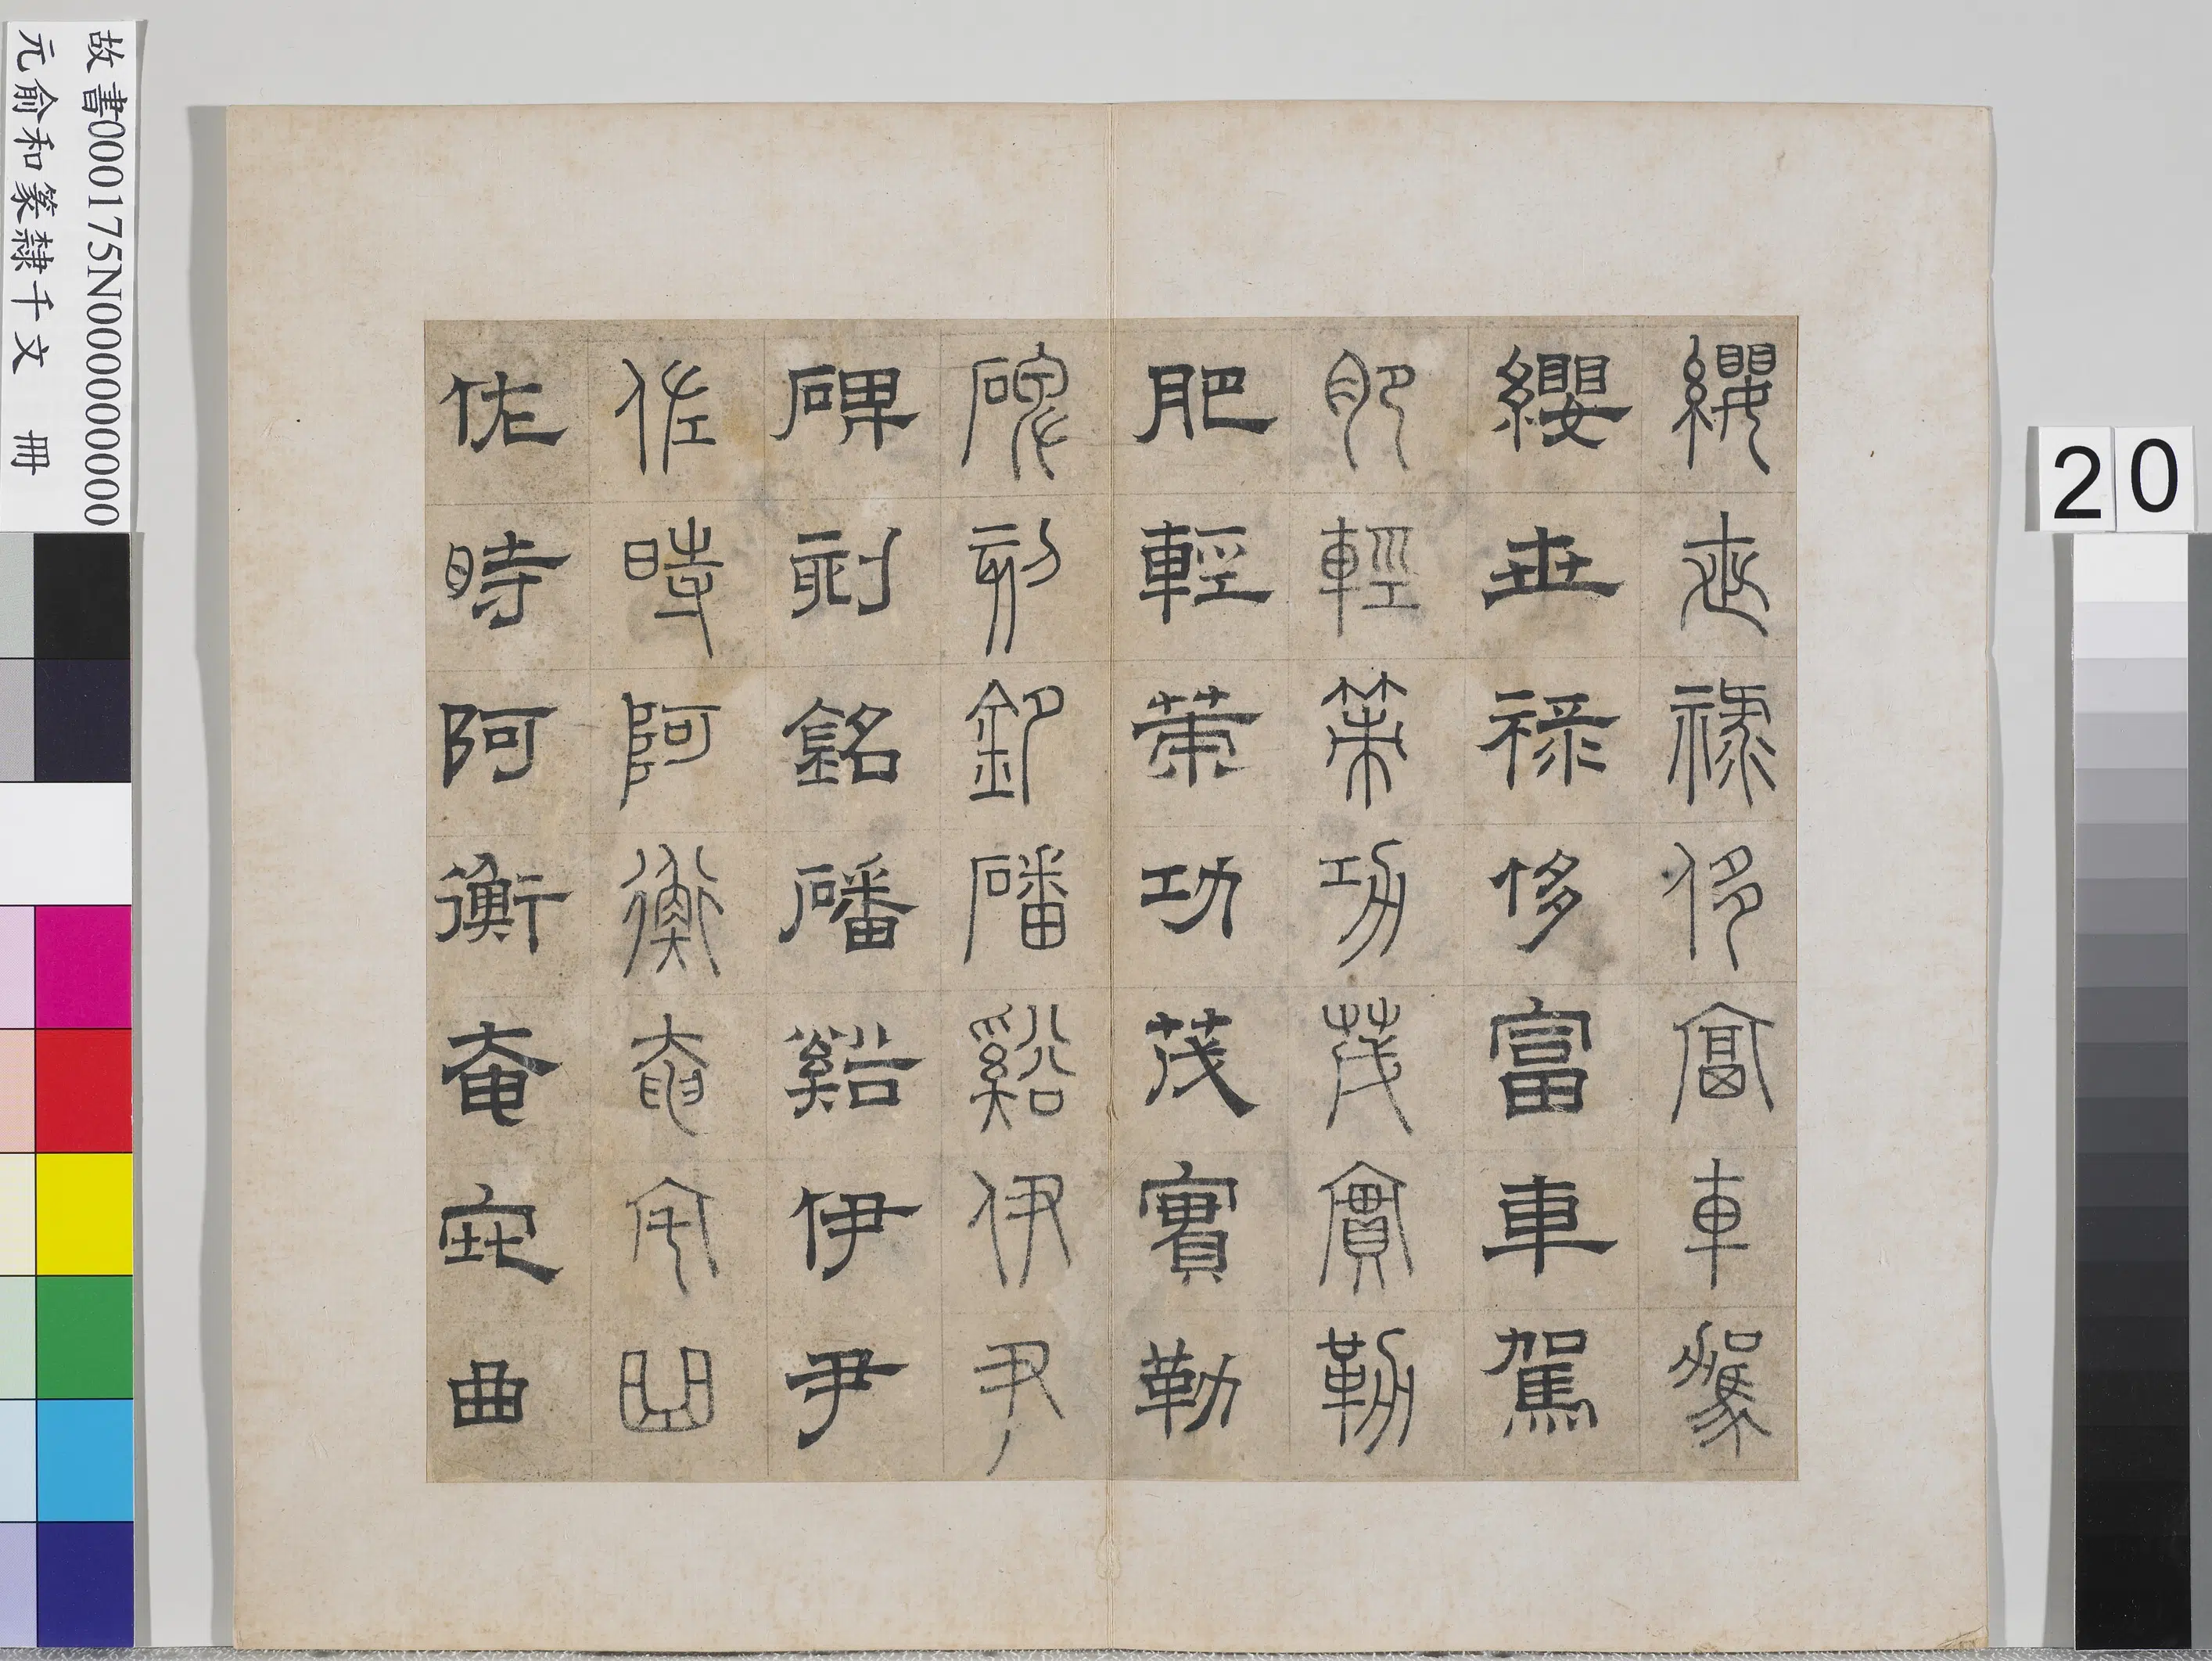 纓世祿侈富車駕
纓世祿侈富車駕
肥輕策功茂實勒
肥輕策功茂實勒
碑刻銘磻谿伊尹
碑刻銘磻谿伊尹
佐時阿衡奄宅曲
佐時阿衡奄宅曲
故書000175N000000000
元俞和篆隸千文 冊
20